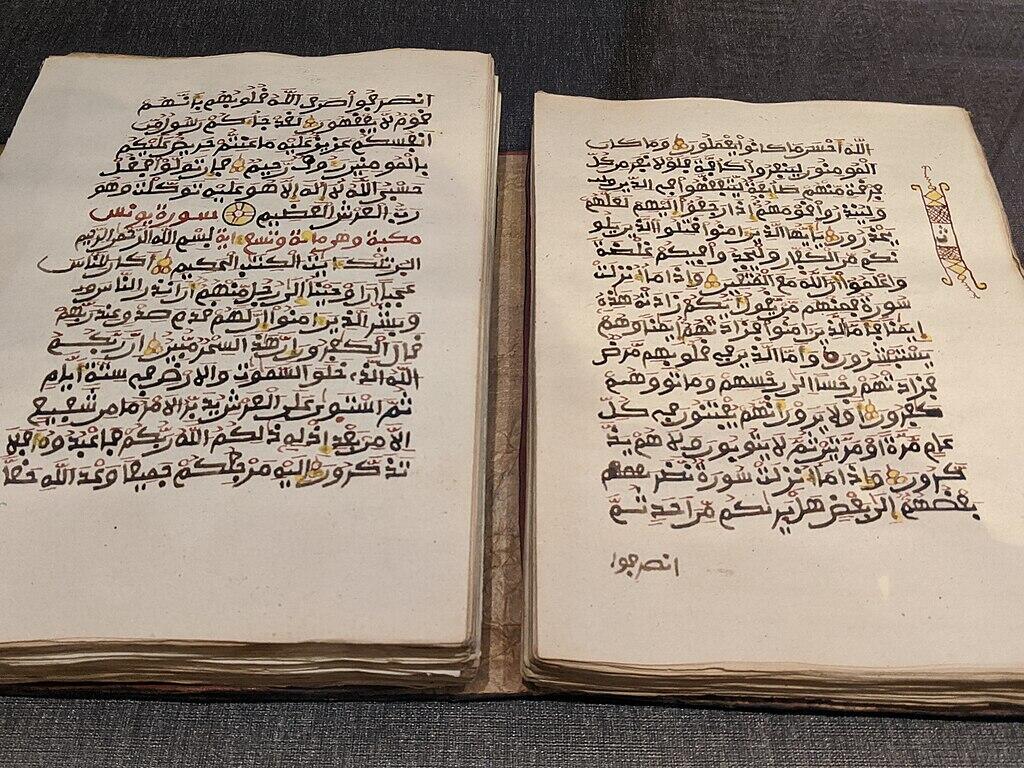 الله أحسن ما كانوا يعملون وما كان
المومنون لينفروا كافة فلولا نفر من كل
فرقة منهم طائفة ليتفقهوا في الدين
ولينذروا قومهم إذا رجعوا إليهم لعلهم
يحذرون يأيها الذين ءامنوا قتلوا الذين يلو
نكم من الكفار وليجدوا فيكم غلظة
واعلموا أن الله مع المتقين وإذا ما أنزلت
سورة فمنهم من يقول أيكم زادته هذه
إيمنا فأما الذين ءامنوا فزادتهم إيمنا وهم
يستبشرون وأما الذين في قلوبهم مرض
فزادتهم رجسا إلى رجسهم وماتوا وهم
كفرون أولا يرون أنهم يفتنون في كل
عام مرة أو مرتين ثم لا يتوبون ولا هم يذ
كرون وإذا ما أنزلت سورة نظر بعضهم
بعضهم إلى بعض هل يريكم من أحد ثم
انصرفوا
انصرفوا صرف الله قلوبهم بأنهم
قوم لا يفقهون لقد جاءكم رسول من
أنفسكم عزيز عليه ما عنتم حريص عليكم
بالمومنين رءوف رحيم فإن تولوا فقل
حسبي الله لا إله إلا هو عليه توكلت وهو
رب العرش العظيم سورة يونس
مكية وهي مائة وتسع ءاية بسم الله الرحمن الرحيم
الر تلك ءايت الكتب الحكيم أكان للناس
عجبا أن أوحينا إلى رجل منهم أن أنذر الناس
وبشر الذين ءامنوا أن لهم قدم صدق عند ربهم
قال الكفرون إن هذا لسحر مبين إن ربكم
الله الذي خلق السموت والارض في ستة أيام
ثم استوى على العرش يدبر الامر ما من شفيع
إلا من بعد إذنه ذلكم الله ربكم فاعبدوه أفلا
تذكرون إليه مرجعكم جميعا وعد الله حقا